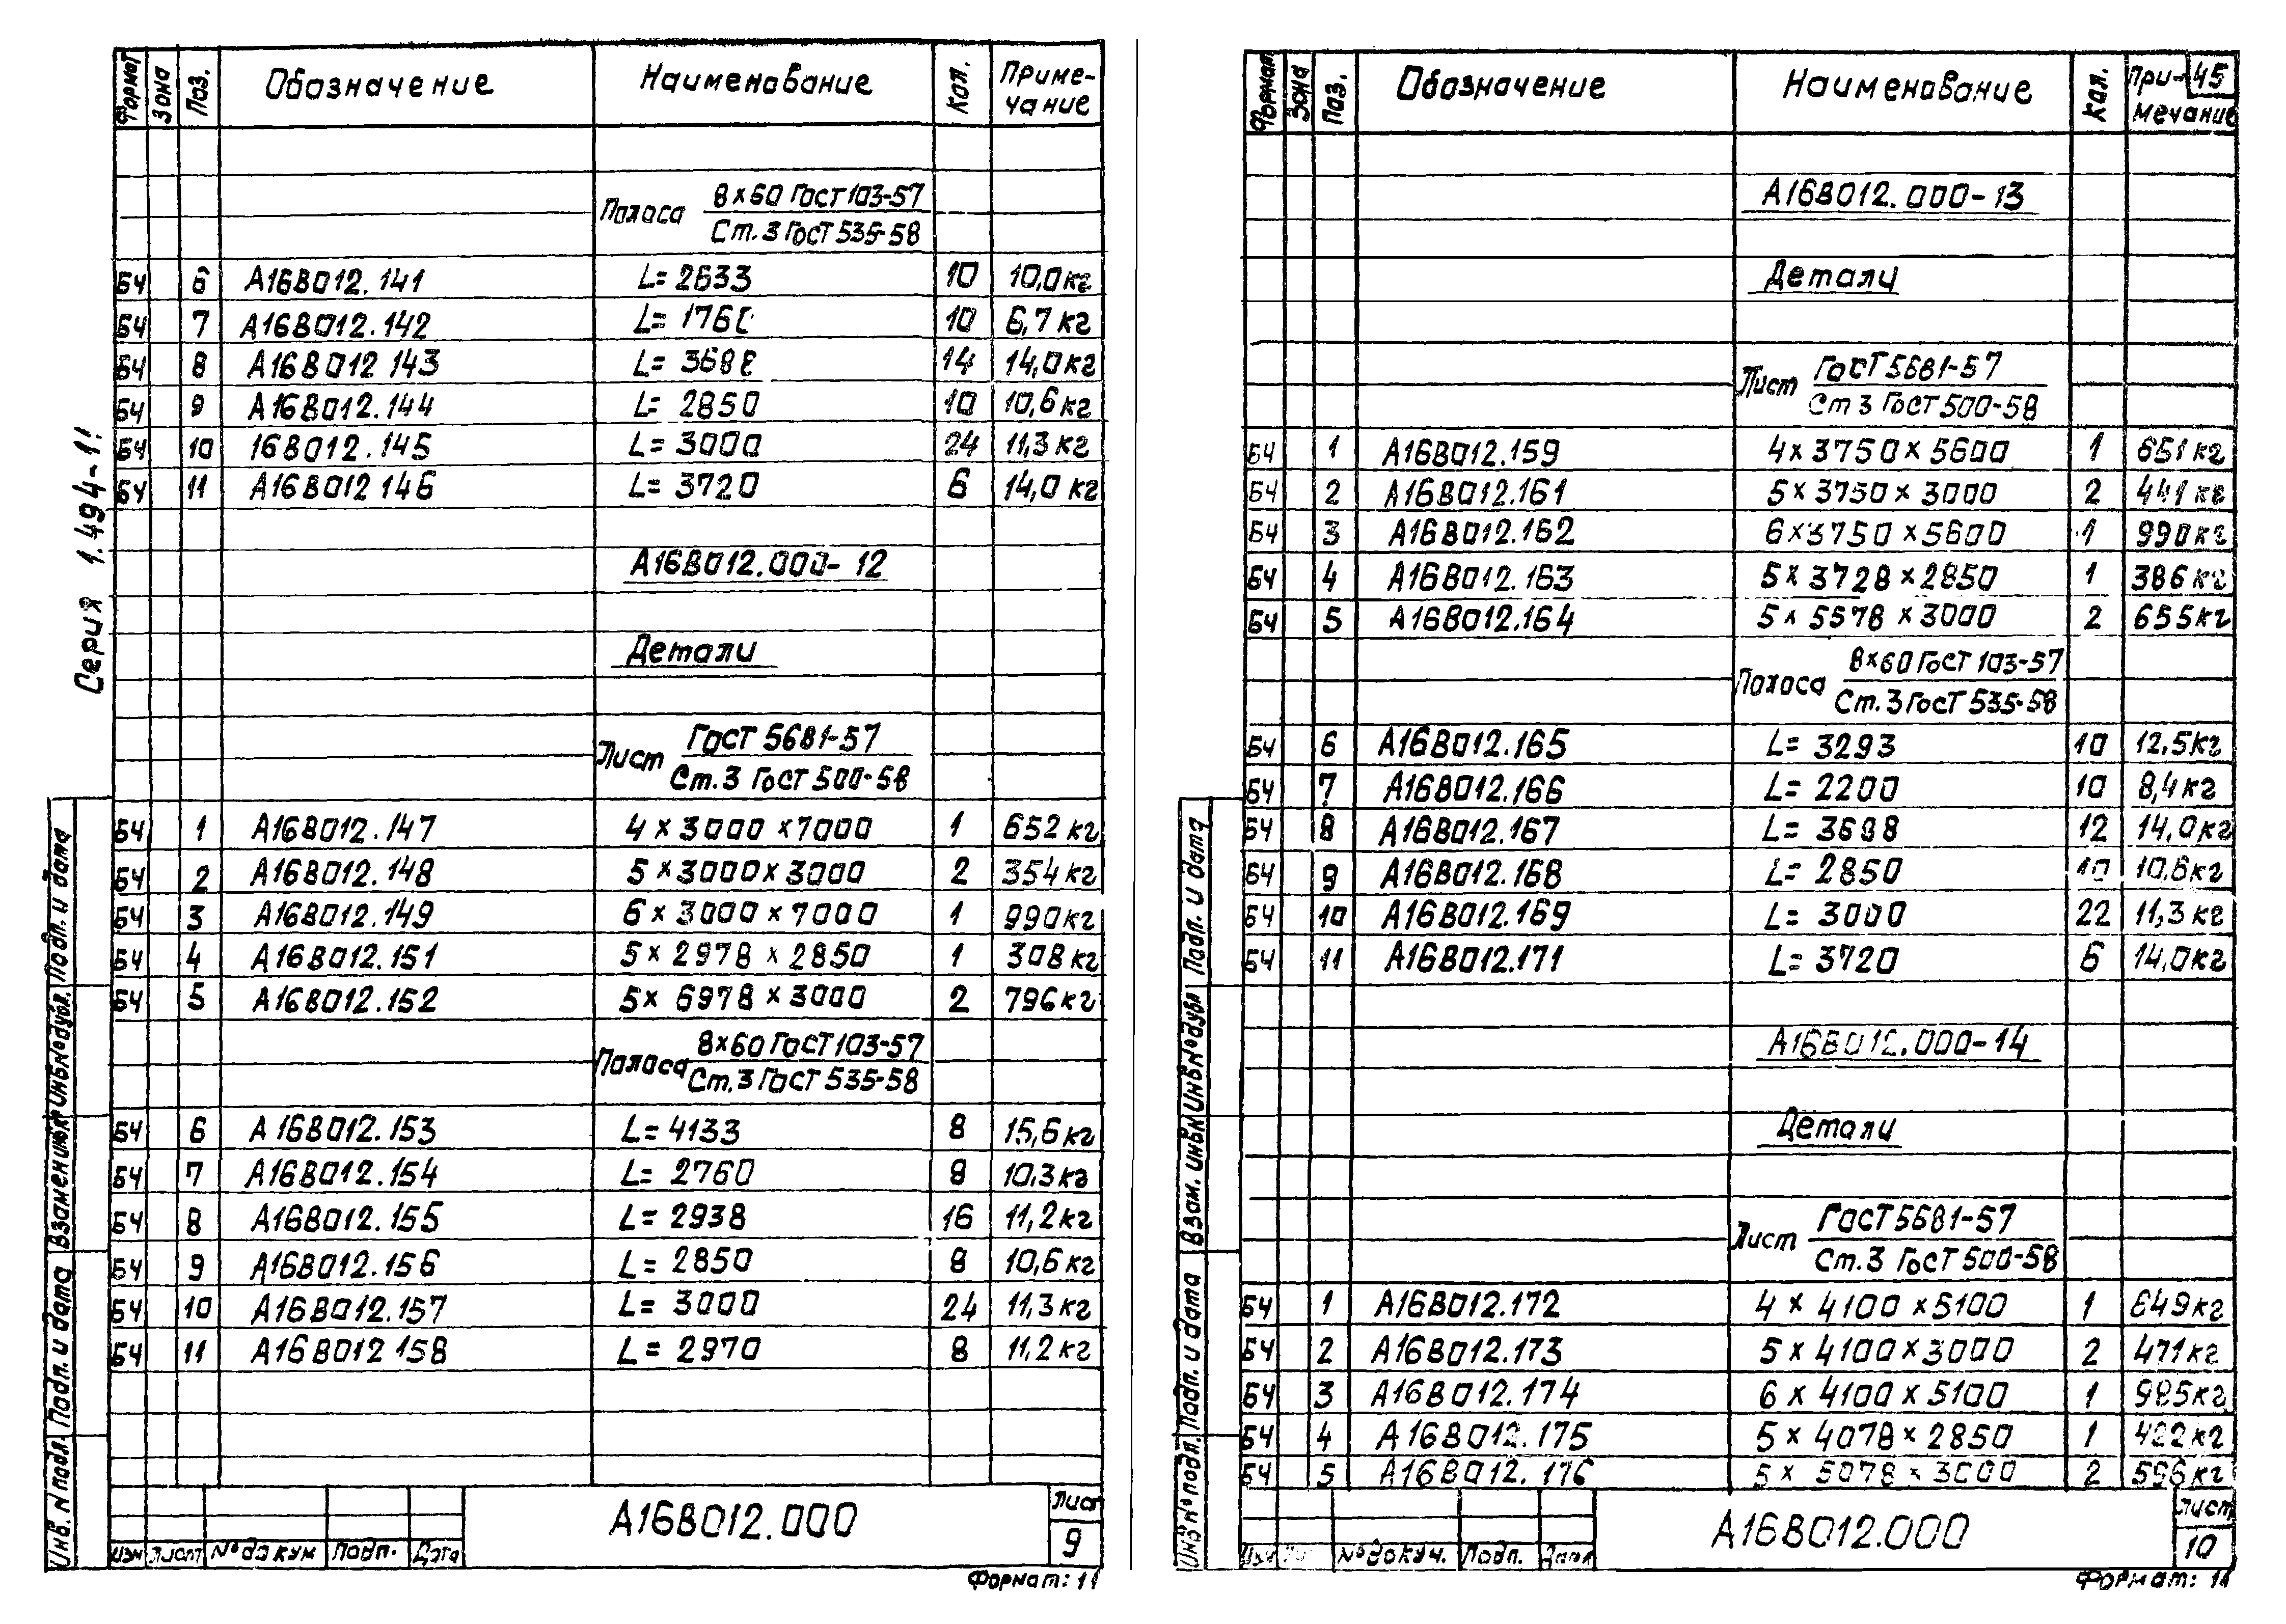 Серия 1.494-1!
Формат Зона Поз. Обозначение Наименование Кол. Приме-
чание
Полоса 8×60 ГОСТ 103-57
Ст. 3 ГОСТ 535-58
БЧ 6 А16В012.141 L= 2633 10 10,0кг
БЧ 7 А16В012.142 L= 10 6,7 кг
БЧ 8 А16В012 143 L= 14 14,0кг
БЧ 9 А16В012.144 L= 2850 10 10,6кг
БЧ 10 16В012.145 L= 3000 24 11,3 кг
БЧ 11 А16В012 146 L= 3720 6 14,0 кг
А16В012.000-12
Детали
Лист ГОСТ 5681-57
Ст.3 ГОСТ 500-58
БЧ 1 А16В012.147 4 × 3000 ×7000 1 652 кг
БЧ 2 А16В012.148 5 ×3000× 3000 2 354 кг
БЧ 3 А16В012.149 6 × 3000 × 7000 1 990кг
БЧ 4 А16В012.151 5 × 2978 × 2850 1 308 кг
БЧ 5 А16В012.152 5× 6978 × 3000 2 796кг
Полоса 8×60 ГОСТ 103-57
Ст.3 ГОСТ 535-58
БЧ 6 А16В012.153 L= 4133 8 15,6 кг
БЧ 7 А16В012.154 L= 2760 8 10,3кг
БЧ 8 А16В012.155 L = 2938 16 11,2кг
БЧ 9 А16В012.156 L = 2850 8 10,6 кг
БЧ 10 А16В012.157 L= 3000 24 11,3 кг
БЧ 11 А16В012 158 L = 2970 8 11,2 кг
Инв. N подл. Подп. и дата Взамен инв№ Инв№дубл. Подп. и дата
Изм Лист №докум Подп. Дата
А16В012.000
Лист
9
Формат: 11
45
Формат Зона Поз. Обозначение Наименование Кол. При-
мечание
А16В012.000-13
Детали
Лист ГОСТ 5681-57
Ст 3 ГОСТ 500-58
БЧ 1 А16В012.159 4× 3750 × 5600 1 651 кг
БЧ 2 А16В012.161 5 × 3750 × 3000 2 441 кг
БЧ 3 А16В012.162 6×3750 ×5600 1 990кг
БЧ 4 А16В012.163 5 × 3728 ×2850 1 386 кг
БЧ 5 А16В012.164 5 × 5578 ×3000 2 655кг
Полоса 8×60 ГОСТ 103-57
Ст.3 ГОСТ 535-58
БЧ 6 А16В012.165 L= 3293 10 12,5кг
БЧ 7 А16В012.166 L= 2200 10 8,4 кг
БЧ 8 А16В012.167 L= 3698 12 14,0кг
БЧ 9 А16В012.168 L= 2850 10 10,6кг
БЧ 10 А16В012.169 L= 3000 22 11,3 кг
БЧ 11 А16В012.171 L= 3720 6 14,0кг
А16В012.000-14
Детали
Лист ГОСТ 5681-57
Ст.3 ГОСТ 500-58
БЧ 1 А16В012.172 4 × 4100 ×5100 1 649кг
БЧ 2 А16В012.173 5 × 4100 ×3000 2 471кг
БЧ 3 А16В012.174 6 × 4100 × 5100 1 985кг
БЧ 4 А16В012.175 5 × 4078 × 2850 1 422кг
БЧ 5 А16В012.176 5 × 5078 × 3000 2 596кг
Инв №подл. Подп. и дата Взам. инв№ Инв№дубл Подп. и дата
Изм №докум. Подп. Дата
А16В012.000
Лист
10
Формат: 11